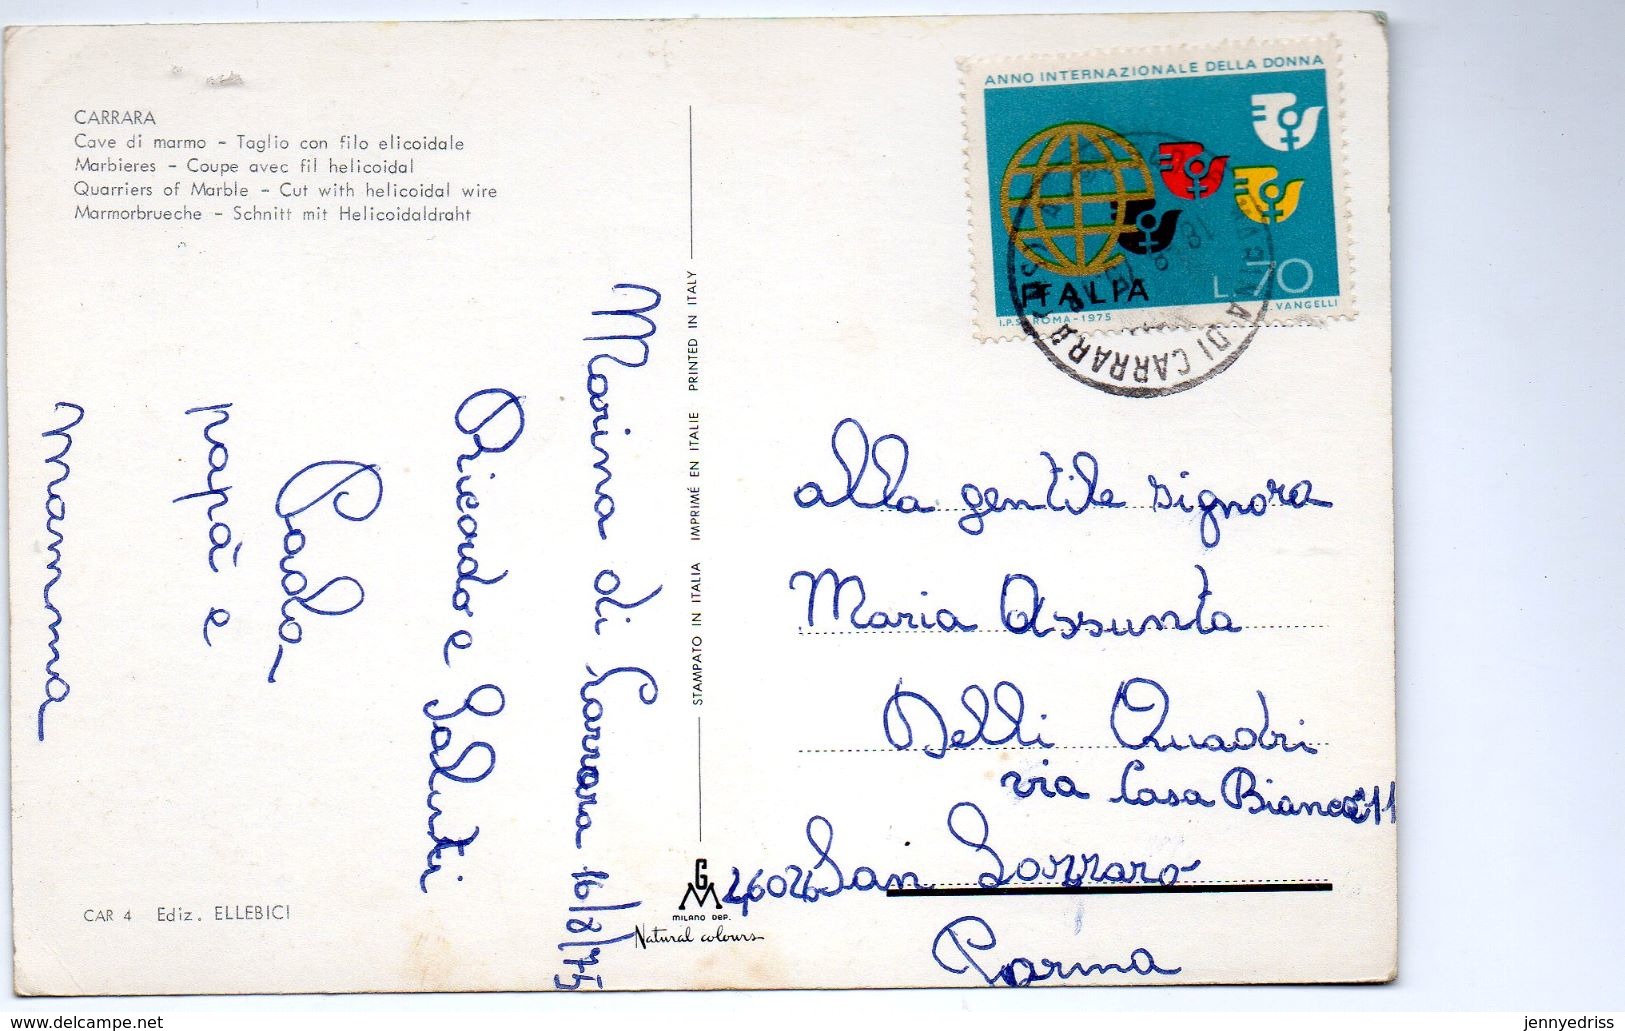 CARRARA
Cave di marmo - Taglio con filo elicoidale
Marbieres - Coupe avec fil helicoidal
Quarriers of Marble - Cut with helicoidal wire
Marmorbrueche - Schnitt mit Helicoidaldraht
Marina di Carrara 16/8/75
Ricordo e Saluti
Paolo
papà e
mamma
CAR 4 Ediz. ELLEBICI
STAMPATO IN ITALIA IMPRIMÉ EN ITALIE PRINTED IN ITALY
GM
MILANO DEP.
Natural colours
ANNO INTERNAZIONALE DELLA DONNA
ITALIA
L.70
I.P.S. ROMA-1975 VANGELLI
MARINA DI CARRARA
alla gentile signora
Maria Assunta
Delli Quadri
via Casa Bianca 11
San Lazzaro
Parma
jennyedriss
www.delcampe.net